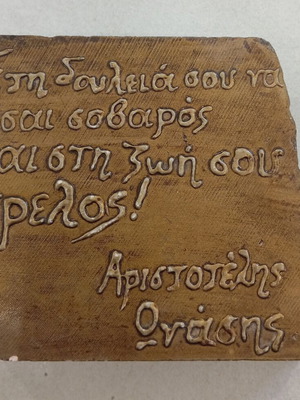 Στη δουλειά σου να
σαι σοβαρός
αι στη ζωή σου
ρελος!
Αριστοτέλης
Ωνάσης